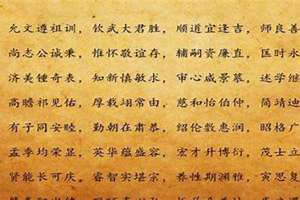 允文遵祖训，钦武大君胜，顺道宜逢吉，师良善
尚志公诚秉，惟怀敬谊存，辅嗣资廉直，匡时永
济美锺奇表，知新慎敏求，审心咸景慕，述
高瞻祁见佑，厚载翊常由，慈和怡伯仲，简靖迪
有子同安睦，勤朝在肃恭，绍伦敷惠润，昭格广
孟季均荣显，英华蕴盛容，宏才升博衍，茂士立
贤能长可庆，睿智实堪宗，养性期渊雅，寅思复